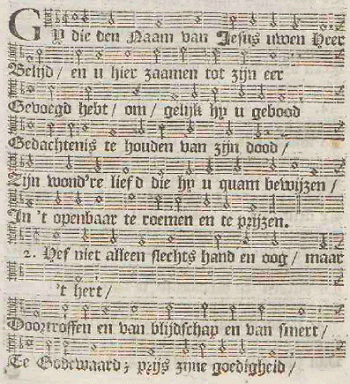 GY die den Naam van Jesus uwen Heer
Belijd/ en u hier zaamen tot zijn eer
Gevoegd hebt/ om/ gelijk hy u gebood
Gedachtenis te houden van zijn dood/
Zijn wond're liefd die hy u quam bewijzen/
In 't openbaar te roemen en te prijzen.
2. Hef niet alleen slechts hand en oog/ maar
't hert/
Doortroffen en van blijdschap en van smert/
Te Godewaard; prijs zijne goedigheid/